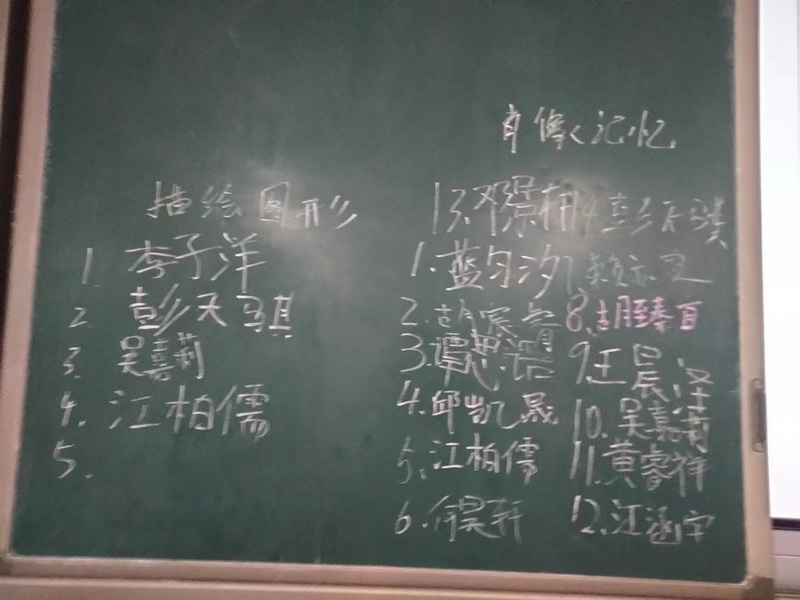 描绘图形
1. 李子洋
2. 彭天骐
3. 吴嘉莉
4. 江柏儒
5.
肖像 记忆
13.邓景 14.彭天骐
1.蓝匀汐 7.
2.胡宸 8.胡臻百
3.谭思语 9.王晨泽
4.邱凯晟 10.吴嘉莉
5.江柏儒 11.黄睿祥
6.徐昊轩 12.江涵宇